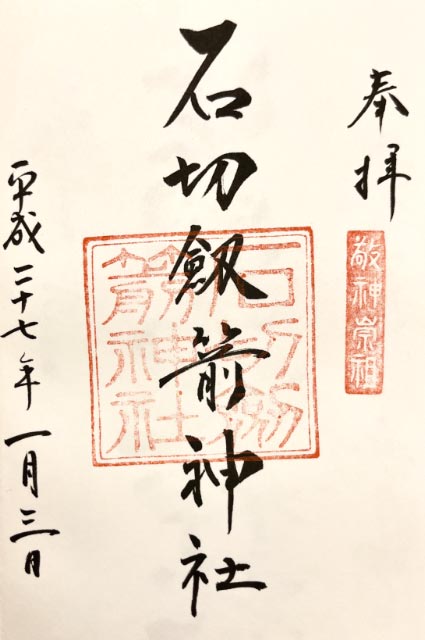 奉拝
敬神崇祖
石切劔箭神社
石切劔箭神社
平成二十七年一月三日